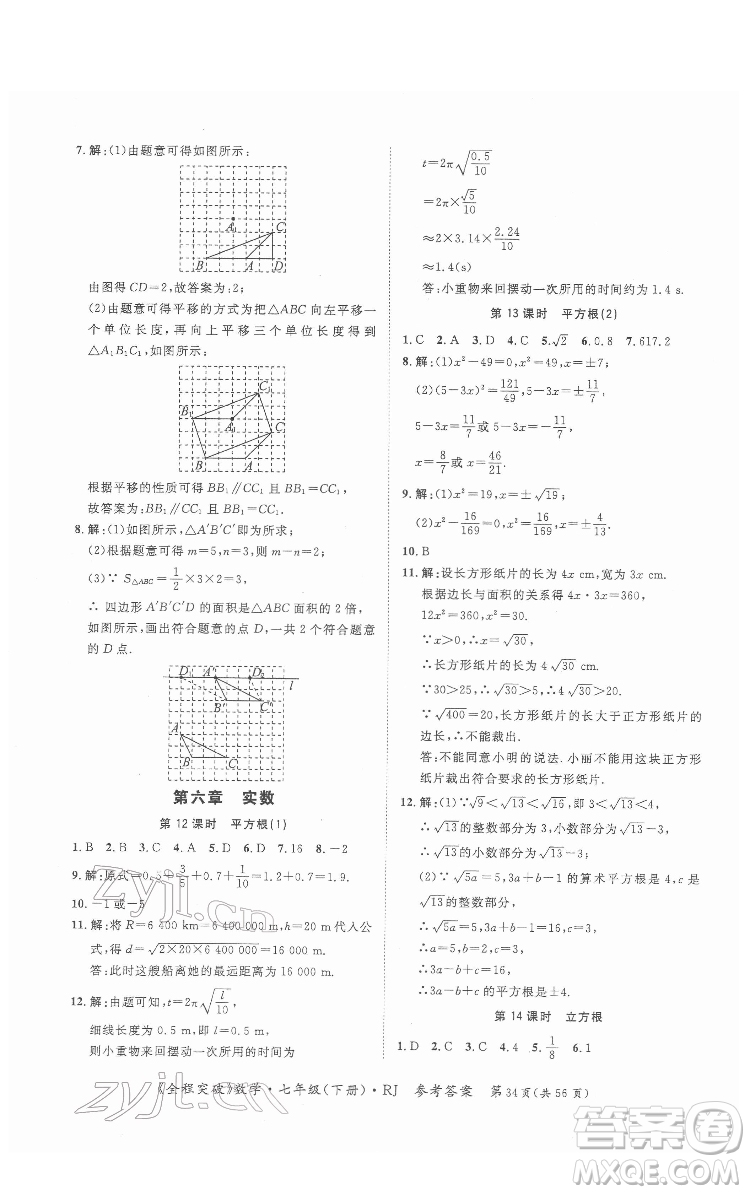 7.解:(1)由题意可得如图所示:
A₁
C
B A D
由图得 CD=2,故答案为:2;
(2)由题意可得平移的方式为把△ABC 向右平移一
个单位长度,再向上平移三个单位长度得到
△A₁B₁C₁,
B₁ A₁ C₁
C
B A
根据平移的性质可得 BB₁∥CC₁ 且 BB₁=CC₁,
故答案为:BB₁∥CC₁ 且 BB₁=CC₁.
8.解:(1)如图所示,△A′B′C′即为所求:
(2)根据题意可得 m=5,n=2,
(3)∵ S△ABC=1/2×3×2=3,
∴ 四边形 A′B′C′D 的面积是△ABC 面积的 2 倍,
如图所示,画出符合题意的点 D,一共 2 个符合题意
的 D 点.
D₁ A′ D₂ l
B′ C′
A
B C
第六章 实数
第 12 课时 平方根(1)
1.B 2.B 3.C 4.A 5.D 6.D 7.16 8.-2
9.解:原式=0.3+3/5+0.7+1/10=1.7.
10.-1或-5
11.解:将 R=6 400 km=6 400 000 m,h=20 m 代入公
式,得 d=√(2×20×6 400 000)=16 000 m.
答:此时这艘船离她的最远距离为 16 000 m.
12.解:由题可知,t=2π√(l/10),
细线长度为 0.5 m,即 l=0.5 m,
则小重物来回摆动一次所用的时间为
t=2π√(0.5/10)
=2π×√5/10
≈2×3.14×2.24/10
≈1.4(s)
答:小重物来回摆动一次所用的时间约为 1.4 s.
第 13 课时 平方根(2)
1.C 2.A 3.D 4.C 5.√2 6.0.8 7.617.2
8.解:(1)x²-49=0,x²=49,x=±7;
(2)(5-3x)²=121/49,5-3x=±11/7,
5-3x=11/7或 5-3x=-11/7,
x=8/7或 x=46/21.
9.解:(1)x²=19,x=±√19;
(2)x²-16/169=0,x²=16/169,x=±4/13.
10.B
11.解:设长方形纸片的长为 4x cm,宽为 3x cm.
根据边长与面积的关系得 4x·3x=360,
12x²=360,x²=30.
∵x>0,∴x=√30,
∴长方形纸片的长为 4√30 cm.
∵30>25,∴√30>5,∴4√30>20,
∵√400=20,∴长方形纸片的长大于正方形纸片的
边长,∴不能裁出.
答:不能同意小明的说法.小丽不能用这块正方形纸
片裁出符合要求的长方形纸片.
12.解:(1)∵√9<√13<√16,∴3<√13<4,
∴√13的整数部分为 3,小数部分为√13-3,
∴√13的整数部分为 3.
(2)∵√5a=5,3a+b-1 的算术平方根为 4,c 是
√13的整数部分,
∴√5a=5,3a+b-1=16,c=3,
∴a=5,b=2,c=3,
∴3a-b+c=3×5-2+3=16,
∴3a-b+c 的平方根是±4.
第 14 课时 立方根
1.D 2.C 3.C 4.4 5.1/8 6.1
《全程突破》数学·七年级(下册)·RJ 参考答案 第34页(共56页)
zyjl.cn
zyjl.cn
答案圈
MXQE.COM